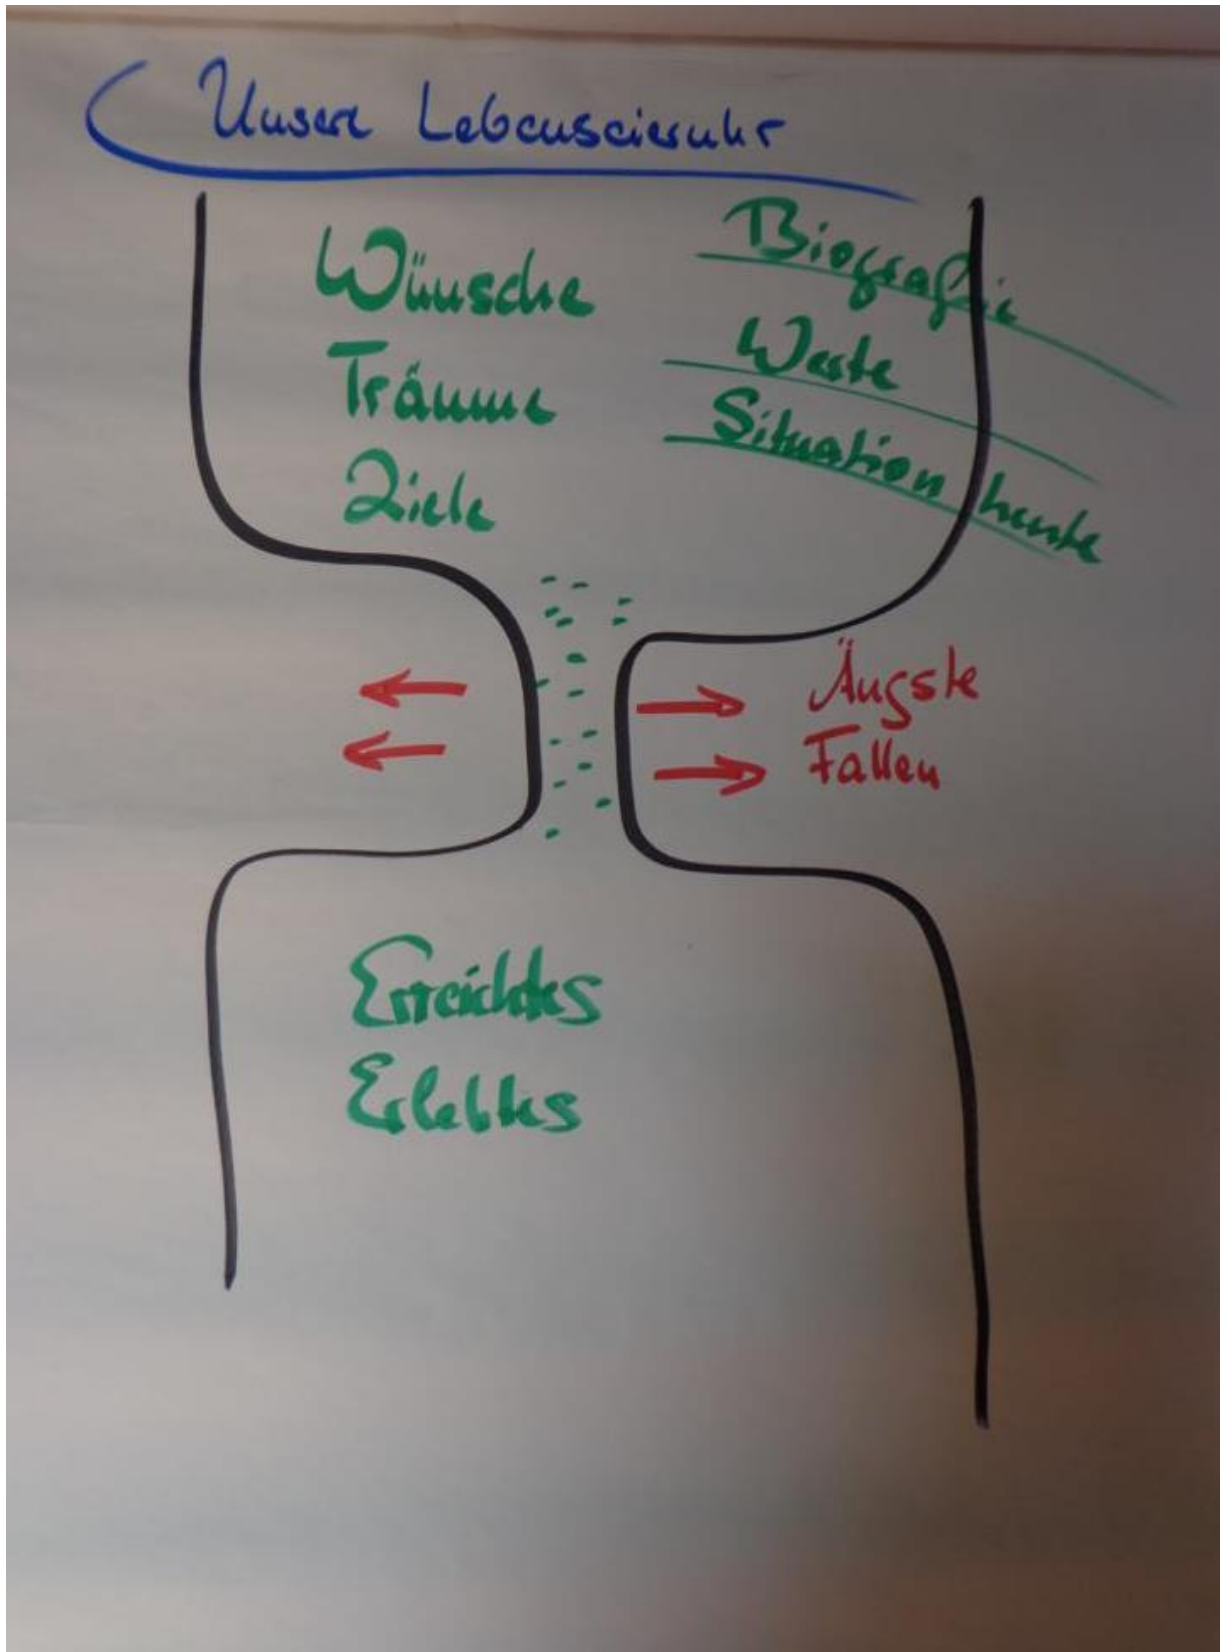 Unsere Lebenseieruhr
Wünsche
Träume
Ziele
Biografie
Werte
Situation heute
Ängste
Fallen
Erreichtes
Erlebtes